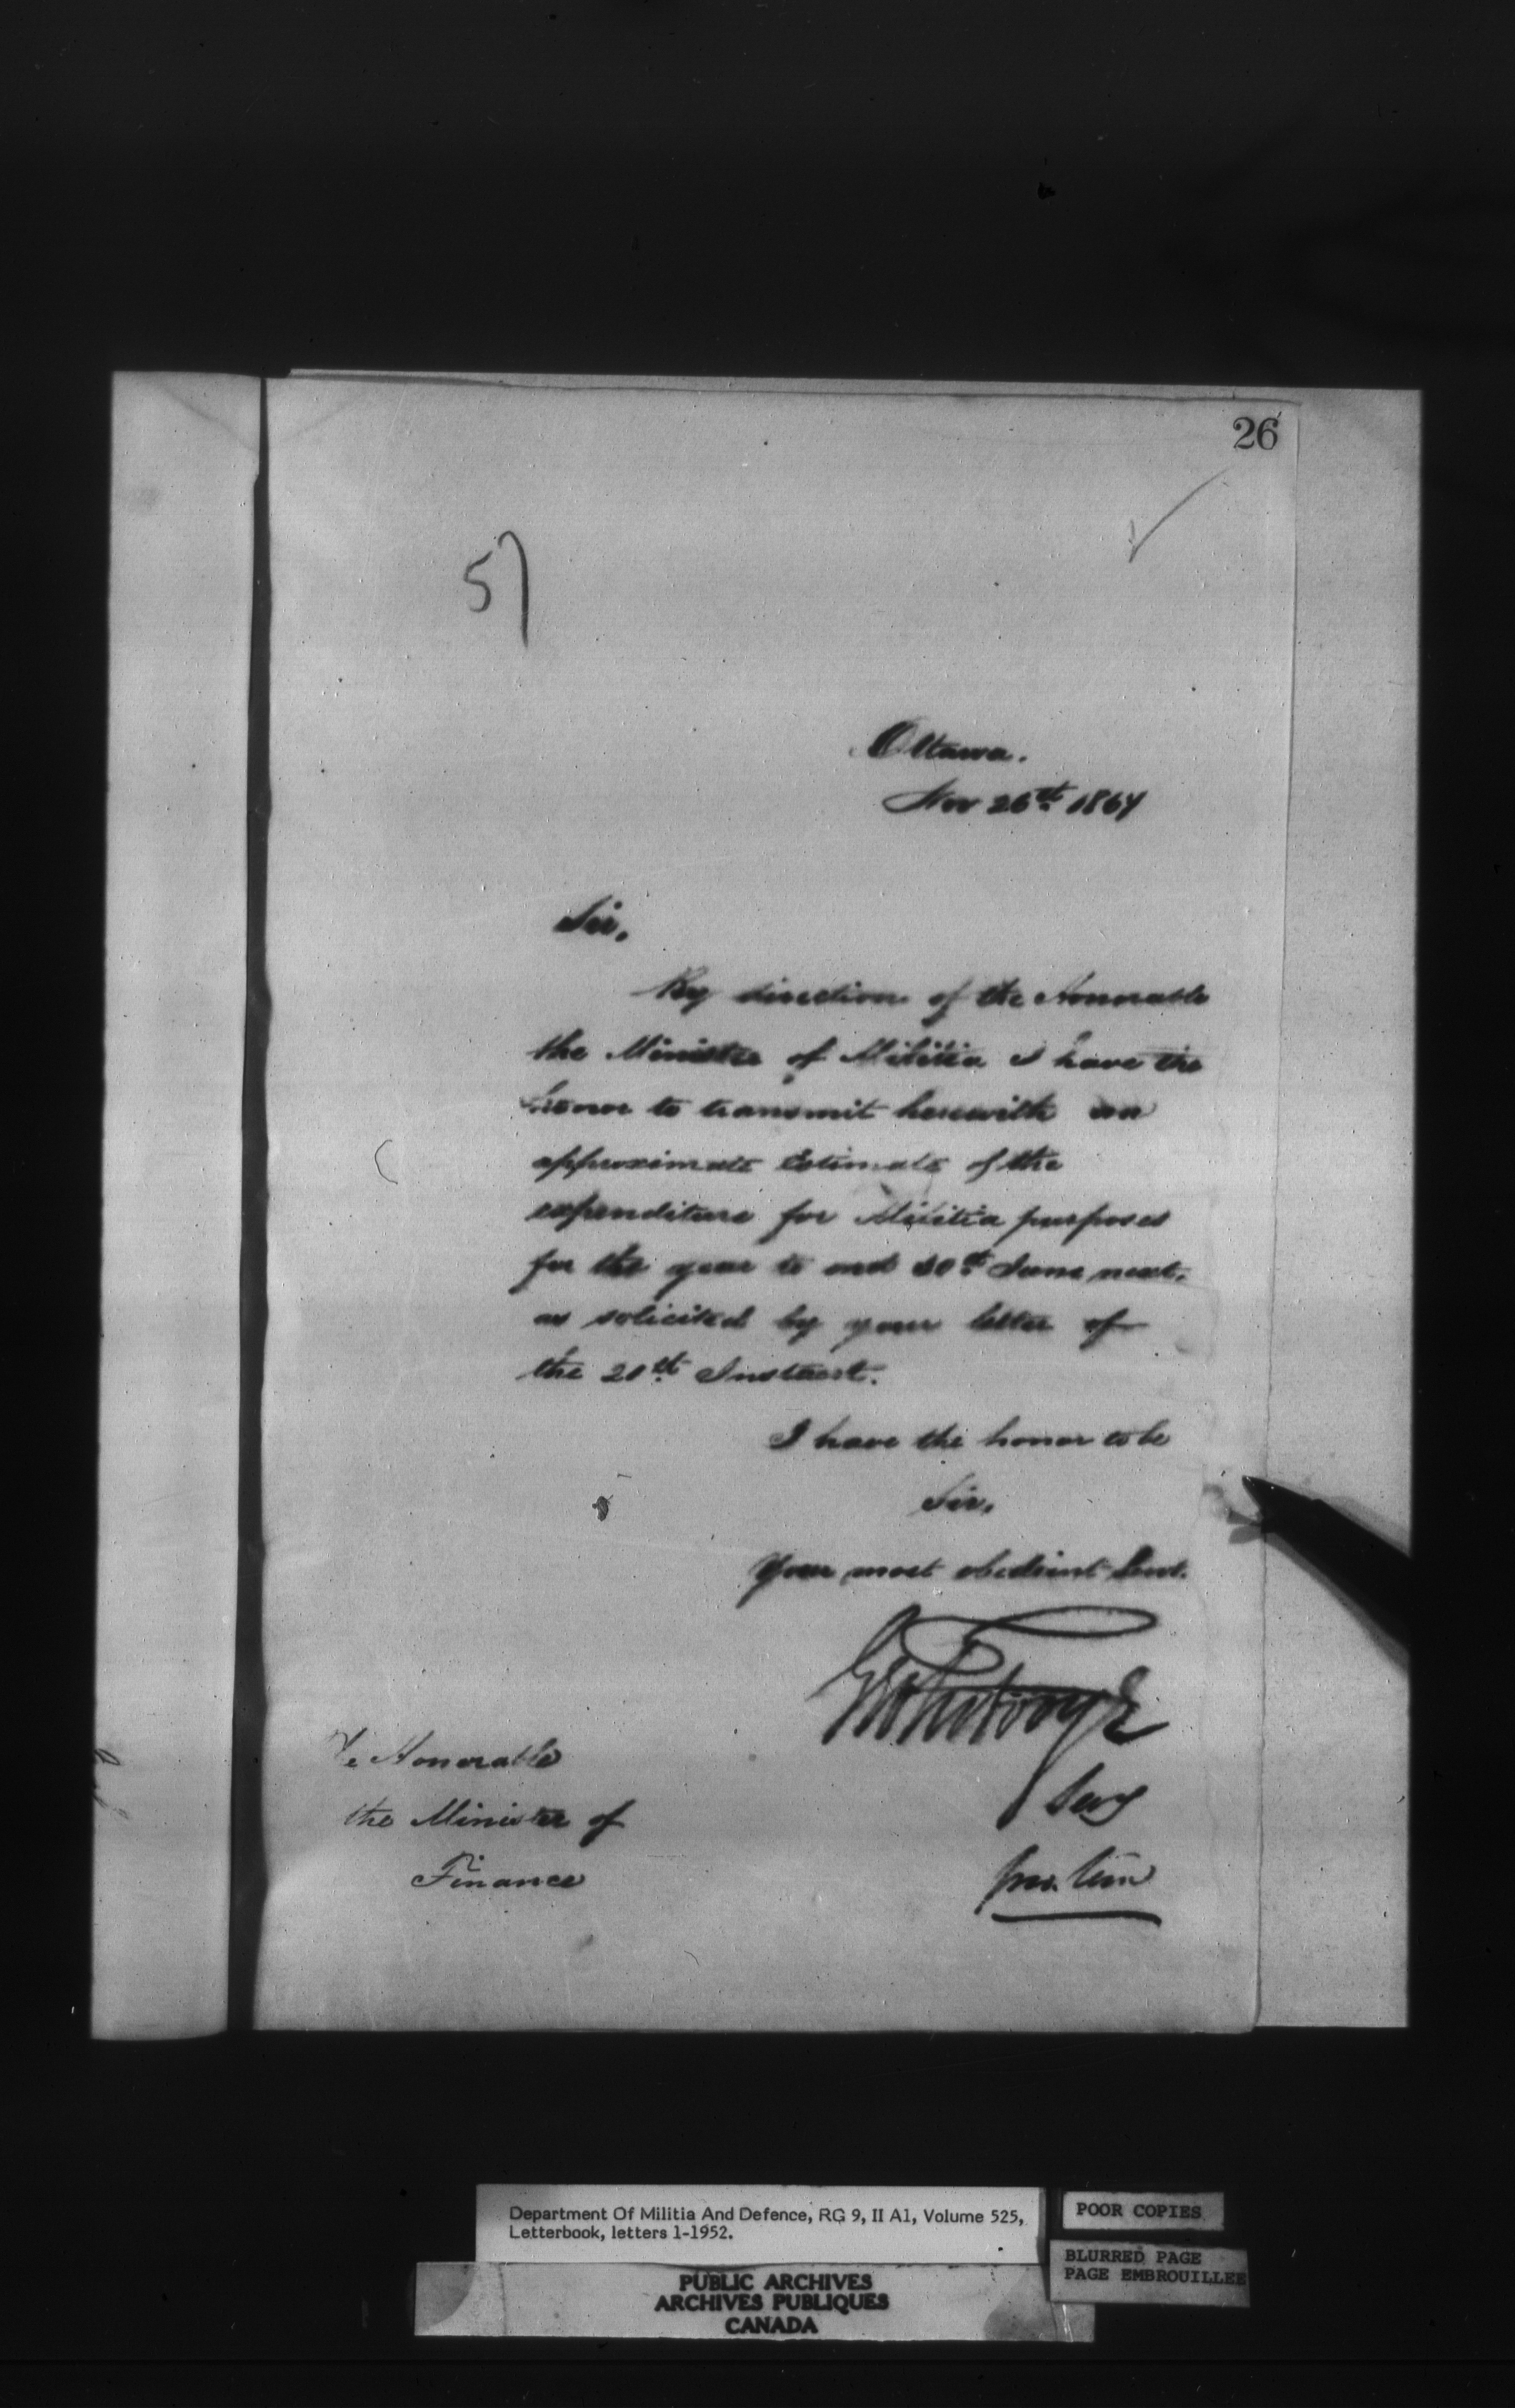 26
57
Ottawa.
Nov 26th 1867
Sir,
By direction of the Honorable
the Minister of Militia I have the
honor to transmit herewith an
approximate Estimate of the
expenditure for Militia purposes
for the year to end 30th June next,
as solicited by your letter of
the 20th Instant.
I have the honor to be
Sir,
Your most obedient Servt.
Secy
pro. tem
The Honorable
the Minister of
Finance
Department Of Militia And Defence, RG 9, II A1, Volume 525,
Letterbook, letters 1-1952.
POOR COPIES
BLURRED PAGE
PAGE EMBROUILLEE
PUBLIC ARCHIVES
ARCHIVES PUBLIQUES
CANADA